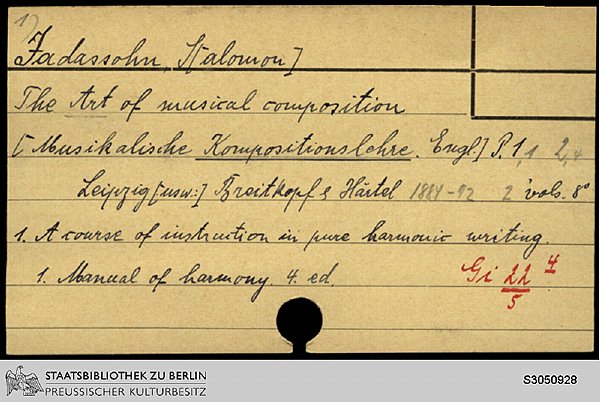 1)
Jadassohn, S[alomon]
The Art of musical composition
[Musikalische Kompositionslehre. Engl.] P. 1,1 2,4
Leipzig [usw.:] Breitkopf & Härtel 1884-92 2 vols. 8°
1. A course of instruction in pure harmonic writing.
1. Manual of harmony. 4. ed.
Gi 22/5 4
STAATSBIBLIOTHEK ZU BERLIN
PREUSSISCHER KULTURBESITZ
S3050928